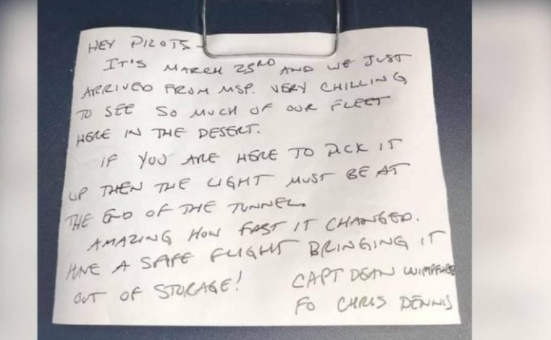 HEY PILOTS-
IT'S MARCH 23RD AND WE JUST
ARRIVED FROM MSP. VERY CHILLING
TO SEE SO MUCH OF OUR FLEET
HERE IN THE DESERT.
IF YOU ARE HERE TO PICK IT
UP THEN THE LIGHT MUST BE AT
THE END OF THE TUNNEL.
AMAZING HOW FAST IT CHANGED.
HAVE A SAFE FLIGHT BRINGING IT
OUT OF STORAGE! CAPT DEAN
FO CHRIS DENNIS